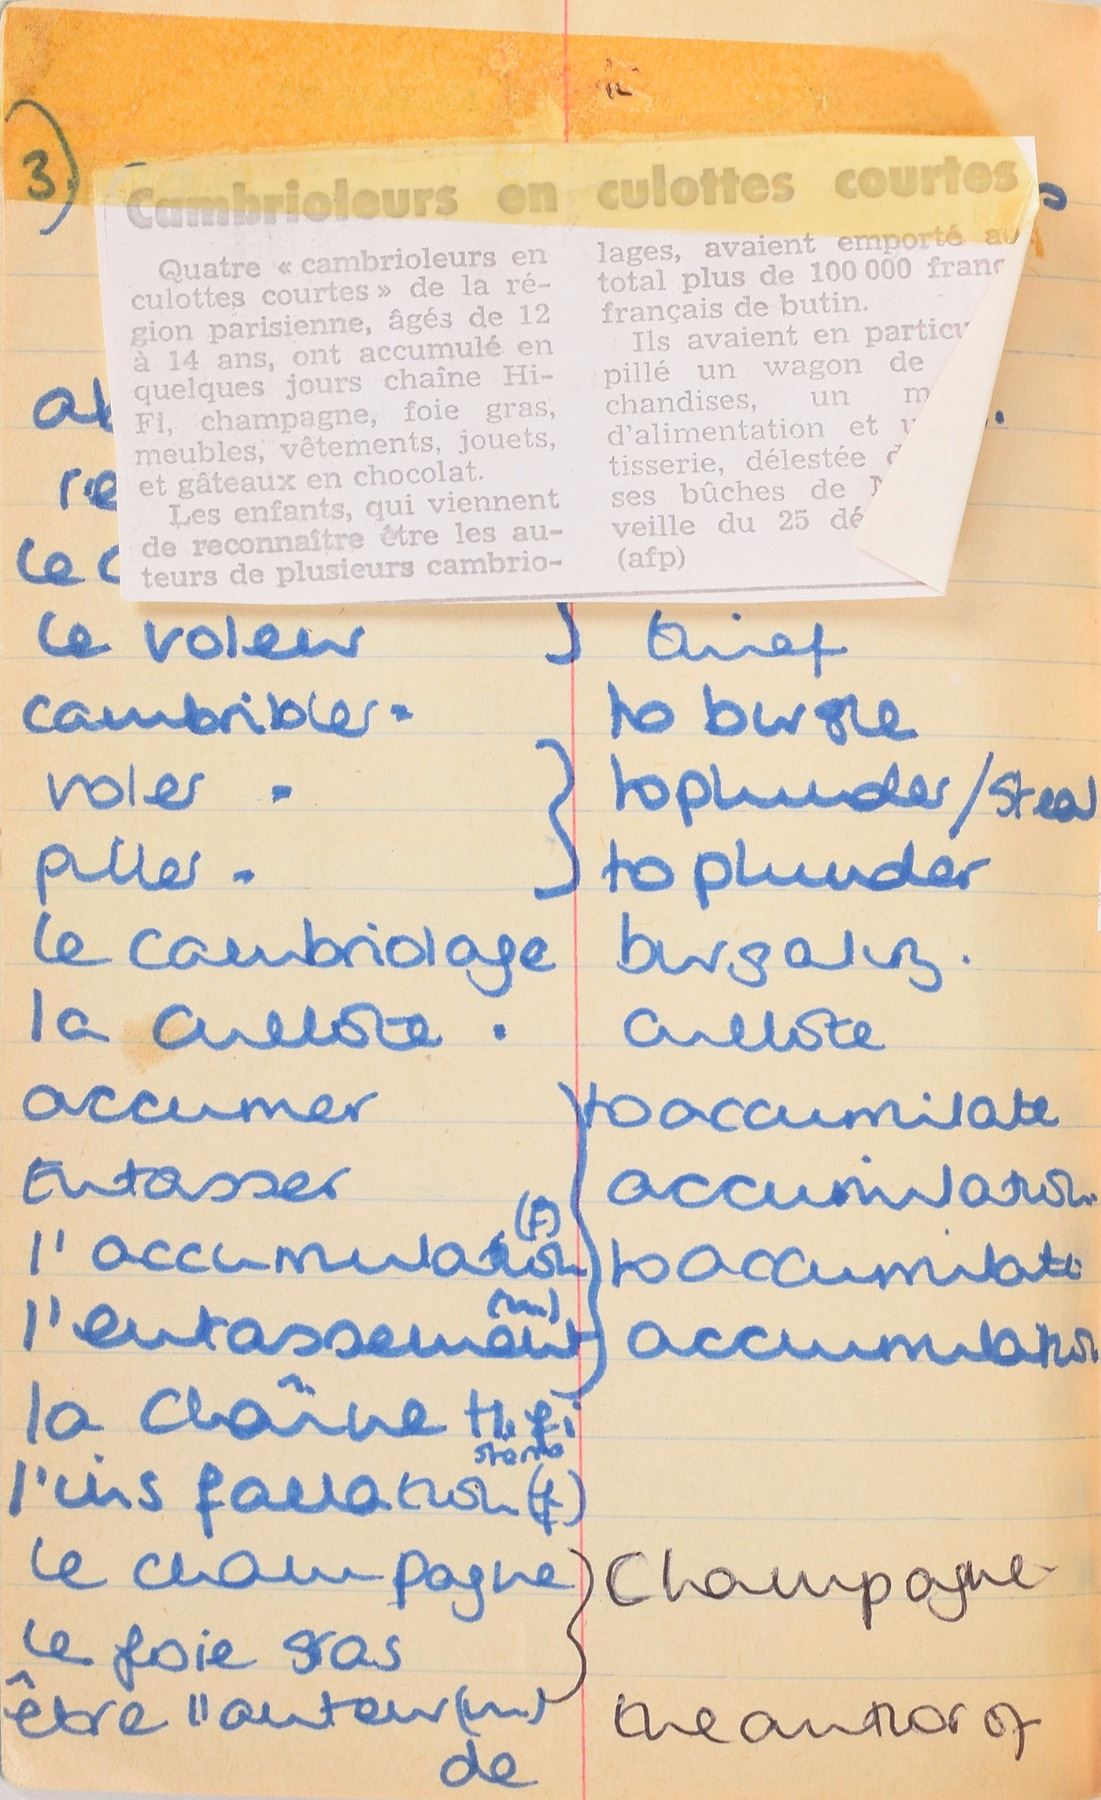 3)
Cambrioleurs en culottes courtes
Quatre « cambrioleurs en
culottes courtes » de la ré-
gion parisienne, âgés de 12
à 14 ans, ont accumulé en
quelques jours chaîne Hi-
Fi, champagne, foie gras,
meubles, vêtements, jouets,
et gâteaux en chocolat.
Les enfants, qui viennent
de reconnaître être les au-
teurs de plusieurs cambrio-
lages, avaient emporté au
total plus de 100 000 franc
français de butin.
Ils avaient en particu
pillé un wagon de
chandises, un m
d'alimentation et u
tisserie, délestée d
ses bûches de N
veille du 25 dé
(afp)
le voleur } thief
cambrioler. to burgle
voler . } to plunder/steal
piller . to plunder
le cambriolage burgalry.
la cullôte . cullôte
accumer to accumilate
Entasser accumilation.
l'accumulation (f) to accumilate
l'entassement (m) accumulation
la chaîne Hi.fi
l'installation stereo (f)
le champagne } Champagne
le foie gras
être l'auteur (m) the author of
de